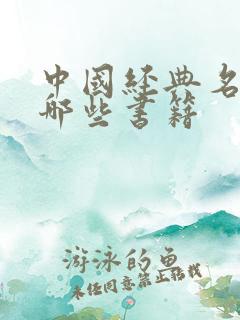 中國经典名
哪些书籍
游泳的鱼
未经同意禁止转载